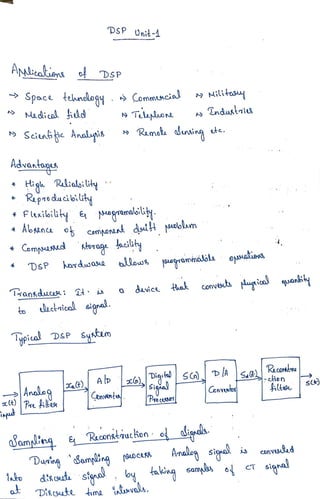 DSP Unit-1
Applications of DSP
→ Space technology. → Commercial → Military
→ Medical field → Telephone → Industries
→ Scientific Analysis → Remote sensing etc.
Advantages
* High Reliability
* Reproducibility
* Flexibility & programability.
* Absence of component drift problem
* Compressed storage facility
* DSP hardware allows programmable operations
Transducer: It is a device that converts physical quantity
to electrical signal.
Typical DSP System
x(t) input → Analog Pre filter → xa(t) → A/D Converter → x(n) → Digital Signal Processor → s(n) → D/A Converter → sa(t) → Reconstruction filter → s(t)
Sampling & Reconstruction of signals.
During Sampling process Analog signal is converted
into discrete signal, by taking samples of CT signal
at Discrete time intervals.